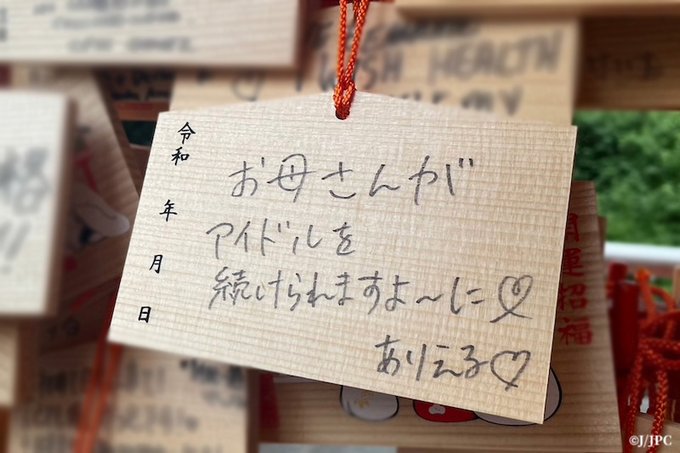 WISH HEALTH
MY
令和
年
月
日
お母さんが
アイドルを
続けられますよ〜に♡
ありえる♡
開運招福
©J/JPC